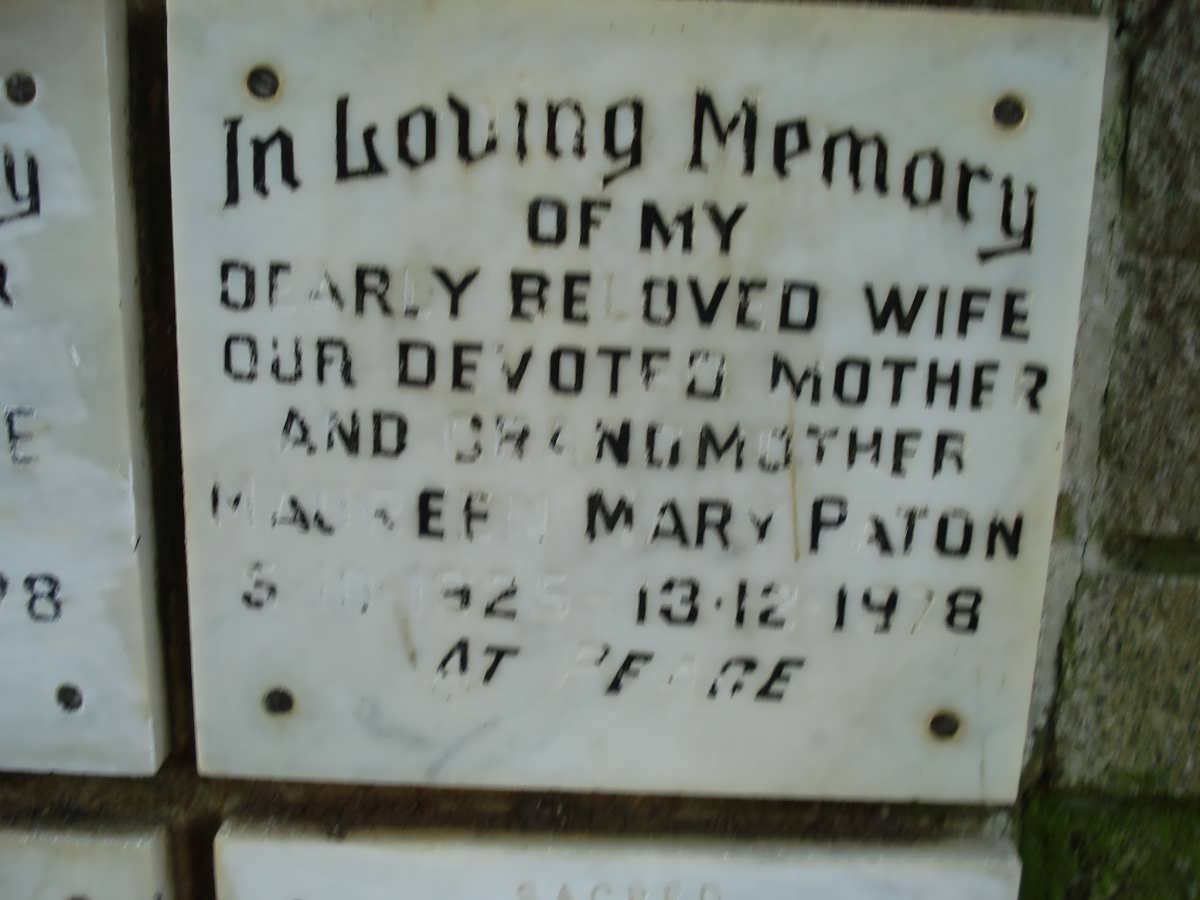 In Loving Memory
OF MY
DEARLY BELOVED WIFE
OUR DEVOTED MOTHER
AND GRANDMOTHER
MAUREEN MARY PATON
13·12·1978
AT PEACE
SACRED